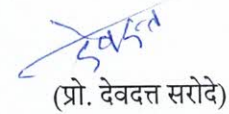 देवदत्त
(प्रो. देवदत्त सरोदे)